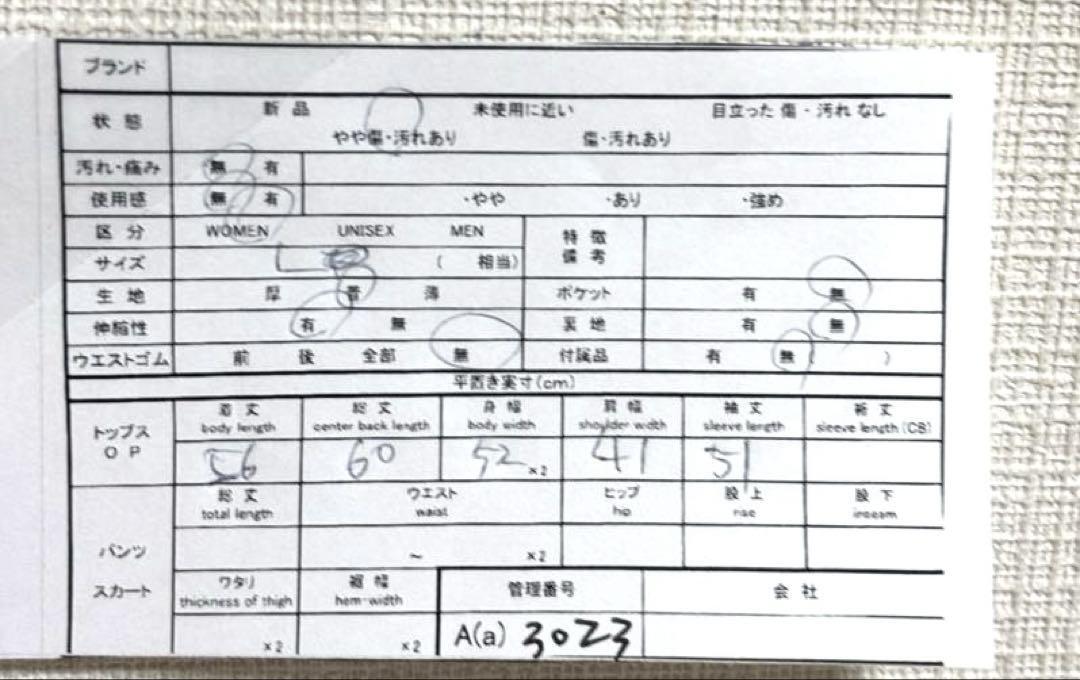 ブランド
状態 新品 未使用に近い 目立った 傷・汚れ なし
やや傷・汚れあり 傷・汚れあり
汚れ・痛み 無 有
使用感 無 有 ・やや ・あり ・強め
区分 WOMEN UNISEX MEN 特徴
備考
サイズ L ( 相当)
生地 厚 普 薄 ポケット 有 無
伸縮性 有 無 裏地 有 無
ウエストゴム 前 後 全部 無 付属品 有 無 )
平置き実寸(cm)
トップス
OP
着丈 総丈 身幅 肩幅 袖丈 裄丈
body length center back length body width shoulder width sleeve length sleeve length (CB)
56 60 52 ×2 41 51
パンツ
スカート
総丈 ウエスト ヒップ 股上 股下
total length waist hip rise inseam
~ ×2
ワタリ 裾幅 管理番号 会社
thickness of thigh hem-width
×2 ×2 A(a) 3023